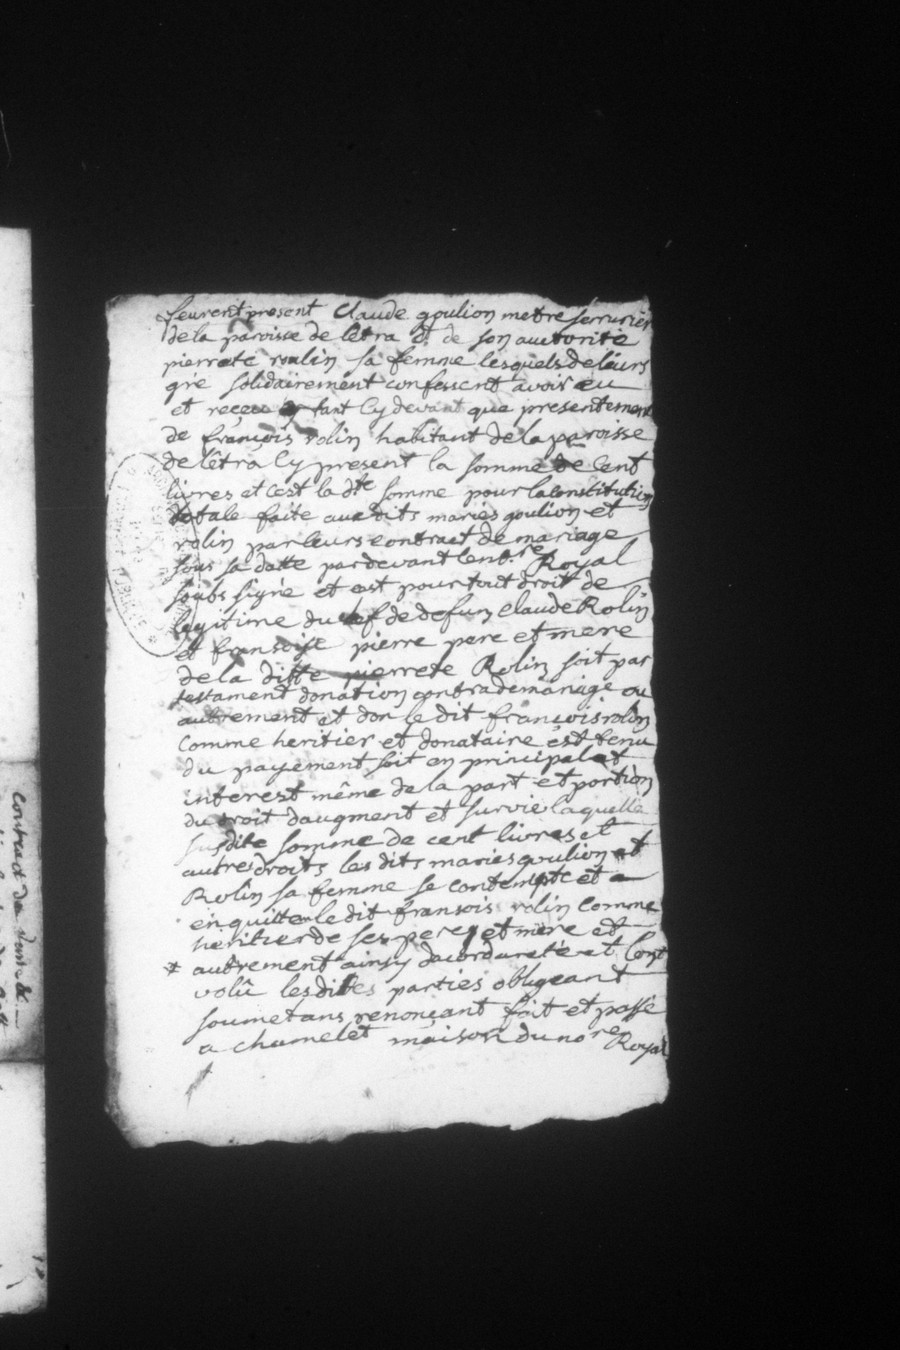 feurent present Claude goulion metre serrurier
de la paroisse de lêtra & de son auttorité
pierrete roulin sa femme lesquels de leurs
gre solidairement confessent avoir eu
et reçeu tant Cy devant que presentement
de françois rolin habitant de la paroisse
de lêtra Cy present la somme de Cent
livres et Cest la dte somme pour la Constitution
dotale faite aux dits mariés goulion et
rolin par leurs contract de mariage
sous sa datte pardevant le notre Royal
soubs signé et est pour tout droit de
legitime du chef de defun Claude Rolin
et fransoise pierre pere et mere
de la ditte pierrete Rolin soit par
testament donation contra de mariage ou
autrement et don le dit françois rolin
Comme heritier et donataire est tenu
du payement soit en principal et
interest même de la part et portion
du droit daugment et survie laquelle
susdite somme de cent livres et
autres droits les dits maries goulion et
Rolin sa femme se contempte et
en quitte le dit fransois rolin Comme
heritier de ses pere et mère et
* autrement ainsy dacord areté et Cont
volû les dites parties obligeant
soumetans renonçant fait et passé
a chamelet maison du nore Royal
Contract de